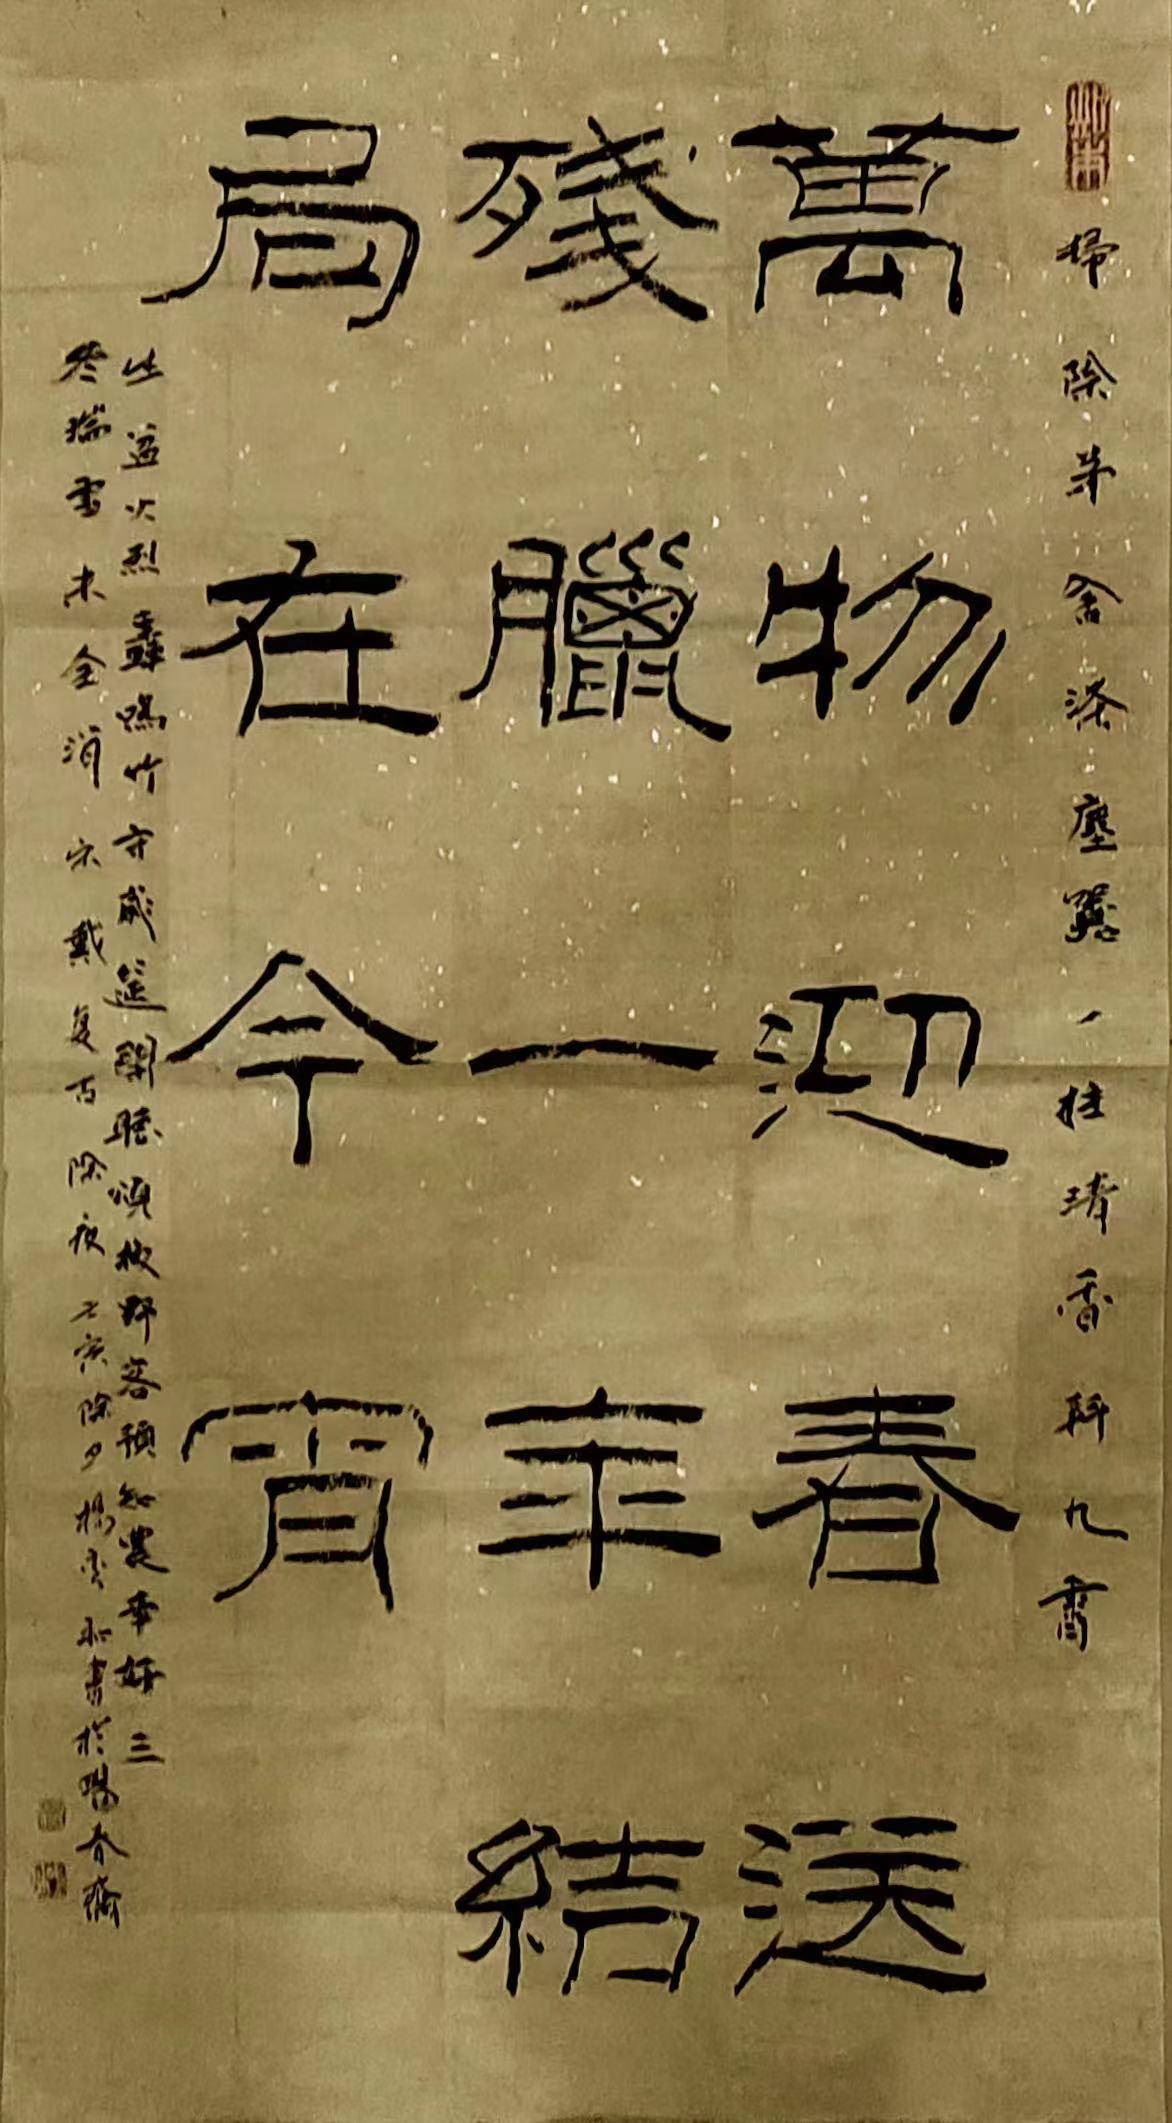 萬物迎春送
殘臘一年結
局在今宵
掃除茅舍滌塵囂一炷清香拜九霄
生盆火烈轟鳴竹守歲筵開聽頌椒野客預知農事好三
冬瑞雪未全消宋戴复古除夜己亥除夕楊書於陽齋